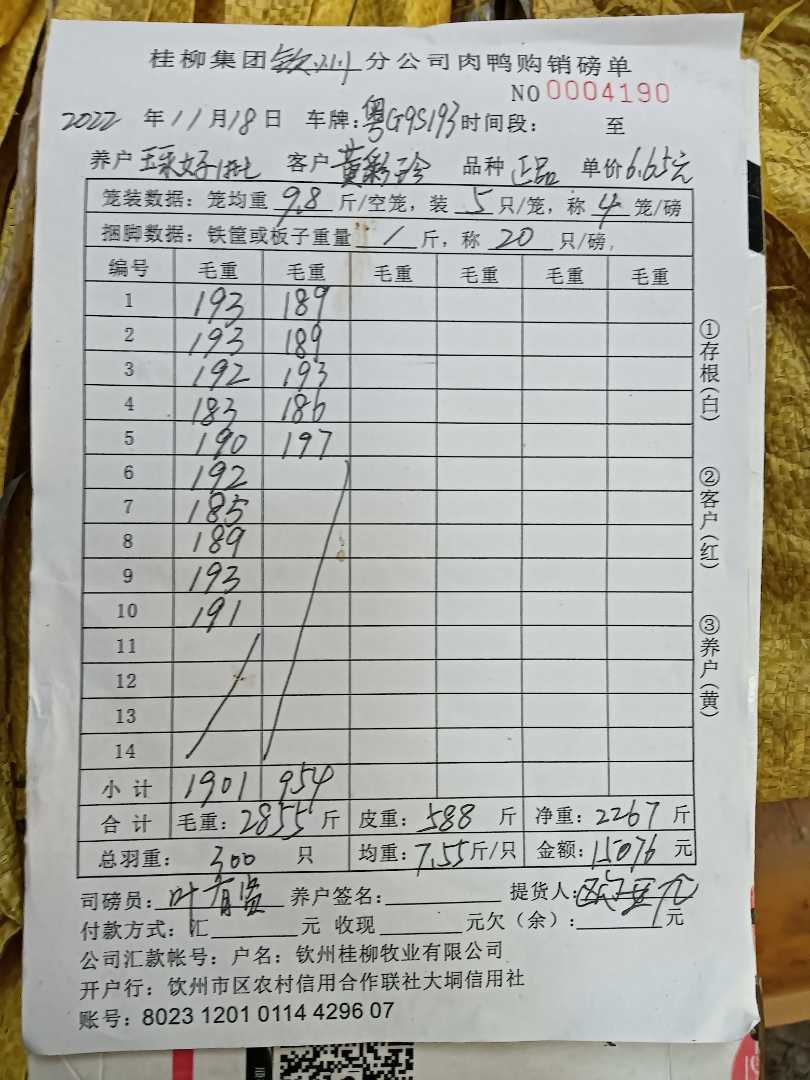 桂柳集团钦州分公司肉鸭购销磅单
NO 0004190
2022 年 11 月 18 日 车牌: 粤G9S193 时间段: 至
养户 客户 黄彩珍 品种 正品 单价 6.65元
笼装数据: 笼均重 9.8 斤/空笼, 装 5 只/笼, 称 4 笼/磅
捆脚数据: 铁筐或板子重量 1 斤, 称 20 只/磅,
编号 毛重 毛重 毛重 毛重 毛重 毛重
1 193 189
2 193 189
3 192 193
4 183 186
5 190 197
6 192
7 185
8 189
9 193
10 191
11
12
13
14
小计 1901 954
合计 毛重: 2855 斤 皮重: 588 斤 净重: 2267 斤
总羽重: 300 只 均重: 7.55 斤/只 金额: 15076 元
司磅员: 叶 养户签名: 提货人:
付款方式: 汇 元 收现 元欠（余）: 元
公司汇款帐号: 户名: 钦州桂柳牧业有限公司
开户行: 钦州市区农村信用合作联社大垌信用社
账号: 8023 1201 0114 4296 07
①存根(白)
②客户(红)
③养户(黄)